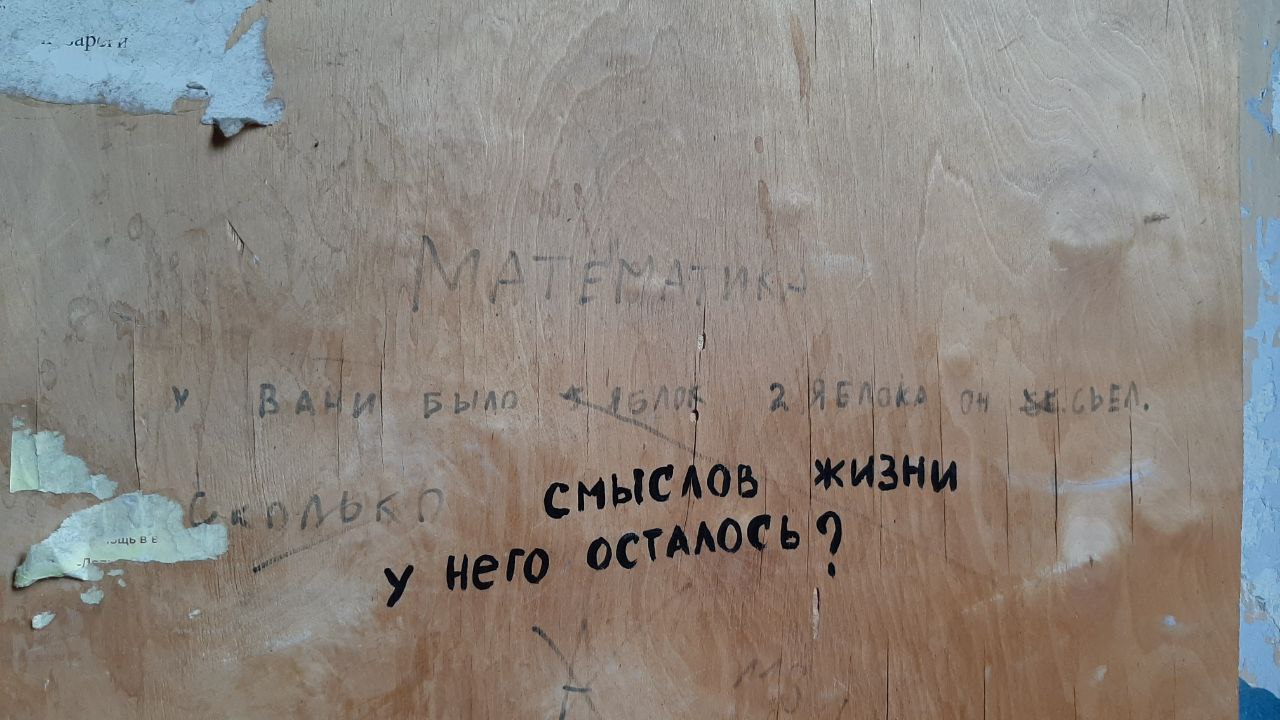 Математика
У Вани было 5 яблок 2 яблока он съел.
Сколько смыслов жизни
у него осталось?